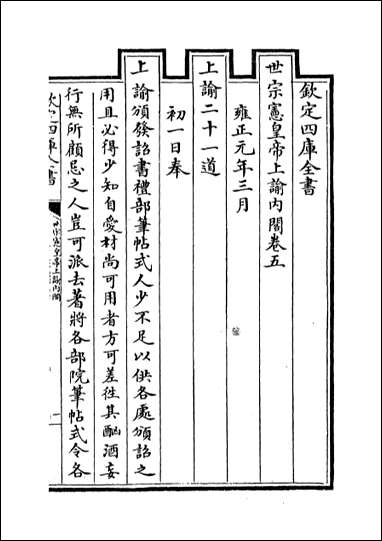 欽定四庫全書
世宗憲皇帝上諭内閣卷五
雍正元年三月
上諭二十一道
初一日奉
上諭頒發詔書禮部筆帖式人少不足以供各處頒詔之
用且必得少知自愛材尚可用者方可差徃其酗酒妄
行無所顧忌之人豈可派去著將各部院筆帖式令各
欽定四庫全書
世宗憲皇帝上諭内閣